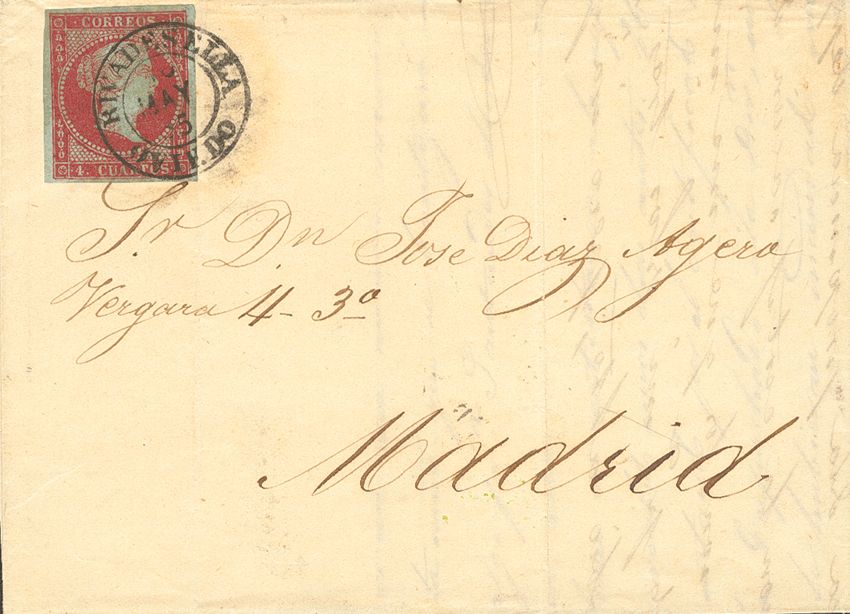 CORREOS
4. CUARTOS
RIVADESELLA
MAY
OVIEDO
Sr Dn Jose Diaz Agero
Vergara 4- 3º
Madrid